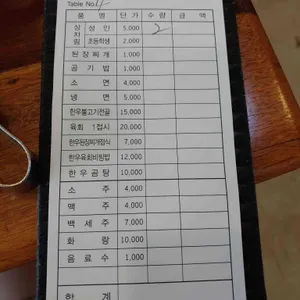 Table No. 4
품 명 단가 수량 금 액
상차림 성인 5,000 2
초등학생 2,000
된장찌개 1,000
공기밥 1,000
소면 4,000
냉면 5,000
한우불고기전골 15,000
육회 1접시 20,000
한우된장찌개정식 7,000
한우육회비빔밥 12,000
한우곰탕 10,000
소주 4,000
맥주 4,000
백세주 7,000
화랑 10,000
음료수 1,000
합 계